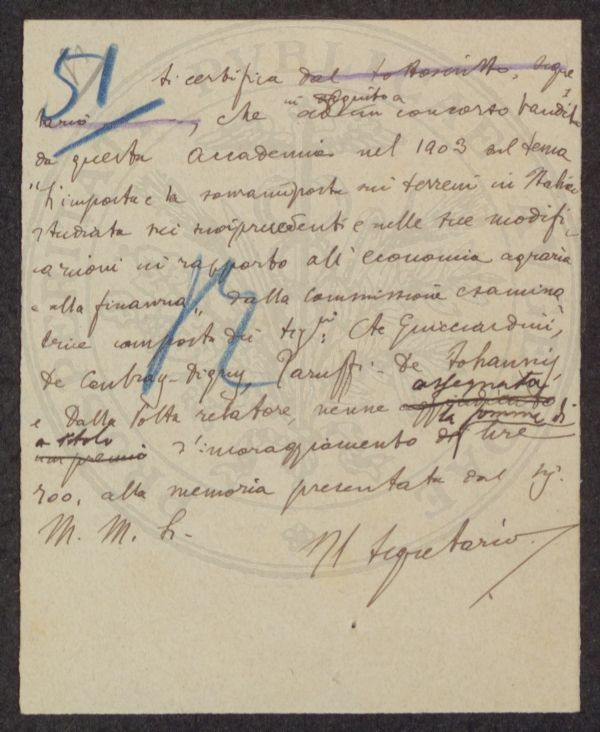 51
Si certifica dal sottoscritto, segre
tario, che in seguito a un concorso bandito
da questa Accademia nel 1903 sul tema
"L'imposta e la sovraimposta sui terreni in Italia
studiata nei suoi precedenti e nelle sue modifi-
cazioni in rapporto all'economia agraria
e alla finanza", dalla Commissione esamina
trice composta dei Sigri: Guicciardini,
De Cambray-Digny, De Johannis
e Dalla Volta relatore, venne assegnata
la somma di
a titolo
un premio d'incoraggiamento di lire
200, alla memoria presentata dal Sig.
M. M. L.
Il Segretario